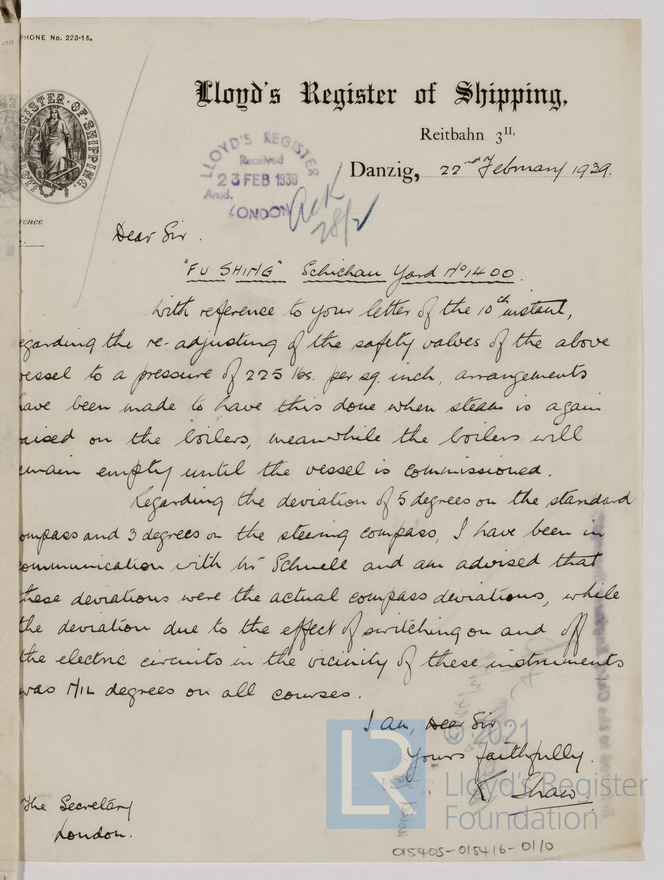 PHONE No. 223-16.
LLOYD'S REGISTER OF SHIPPING.
Lloyd's Register of Shipping,
Reitbahn 3II,
Danzig, 22nd February 1939.
LLOYD'S REGISTER
Received
23 FEB 1939
Ansd.
LONDON
Ack
28/2
rence
Dear Sir.
"FU SHING" Schichau Yard No 1400.
With reference to your letter of the 10th instant,
egarding the re-adjusting of the safety valves of the above
essel to a pressure of 225 lbs. per sq. inch, arrangements
ave been made to have this done when steam is again
aised on the boilers, meanwhile the boilers will
emain empty until the vessel is commissioned.
Regarding the deviation of 5 degrees on the standard
ompass and 3 degrees on the steering compass, I have been in
ommunication with Mr Schnell and am advised that
these deviations were the actual compass deviations, while
the deviation due to the effect of switching on and off
the electric circuits in the vicinity of these instruments
was NIL degrees on all courses.
I am, Dear Sir,
Yours faithfully.
K. Shaw.
The Secretary
London.
LR
© 2021
Lloyd's Register
Foundation
015405-015416-0110